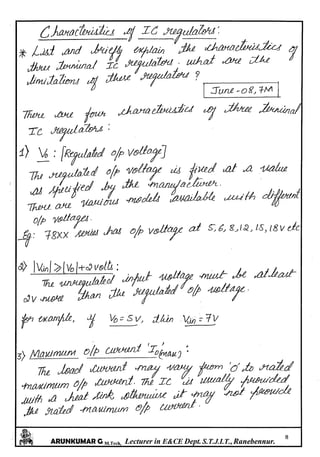 Characteristics of IC regulators:
* List and briefly explain the characteristics of
three terminal IC regulators. what are the
limitations of these regulators?
June-08, 7M
There are four characteristics of three terminal
IC regulators:
1) Vo : [Regulated o/p voltage]
The regulated o/p voltage is fixed at a value
as specified by the manufacturer.
There are various models available with different
o/p voltages.
Eg: 78XX series has o/p voltage at 5, 6, 8, 12, 15, 18V etc
2) |Vin| ≥ |Vo| + 2 volts :
The unregulated input voltage must be at least
2V more than the regulated o/p voltage.
for example, if Vo = 5V, then Vin = 7V
3) Maximum o/p current 'Io(max)' :
The load current may vary from '0' to rated
maximum o/p current. The IC is usually provided
with a heat sink otherwise it may not provide
the rated maximum o/p current.
ARUNKUMAR G M.Tech, Lecturer in E&CE Dept. S.T.J.I.T., Ranebennur.
8